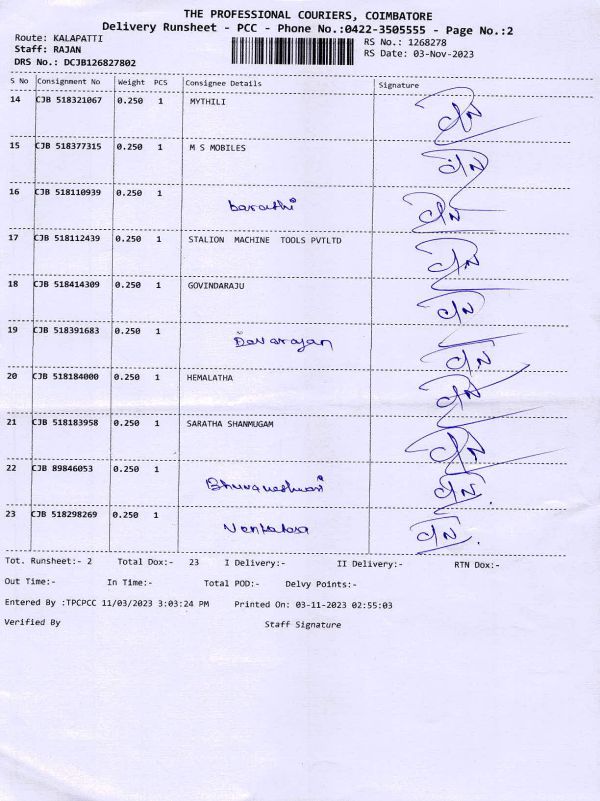 THE PROFESSIONAL COURIERS, COIMBATORE
Delivery Runsheet - PCC - Phone No.:0422-3505555 - Page No.:2
Route: KALAPATTI
RS No.: 1268278
Staff: RAJAN
RS Date: 03-Nov-2023
DRS No.: DCJB126827802
S No Consignment No Weight PCS Consignee Details Signature
14 CJB 518321067 0.250 1 MYTHILI
15 CJB 518377315 0.250 1 M S MOBILES
16 CJB 518110939 0.250 1 barathi
17 CJB 518112439 0.250 1 STALION MACHINE TOOLS PVTLTD
18 CJB 518414309 0.250 1 GOVINDARAJU
19 CJB 518391683 0.250 1 Devarajan
20 CJB 518184000 0.250 1 HEMALATHA
21 CJB 518183958 0.250 1 SARATHA SHANMUGAM
22 CJB 89846053 0.250 1 Bhuvaneshwari
23 CJB 518298269 0.250 1
Tot. Runsheet:- 2 Total Dox:- 23 I Delivery:- II Delivery:- RTN Dox:-
Out Time:- In Time:- Total POD:- Delvy Points:-
Entered By :TPCPCC 11/03/2023 3:03:24 PM Printed On: 03-11-2023 02:55:03
Verified By Staff Signature